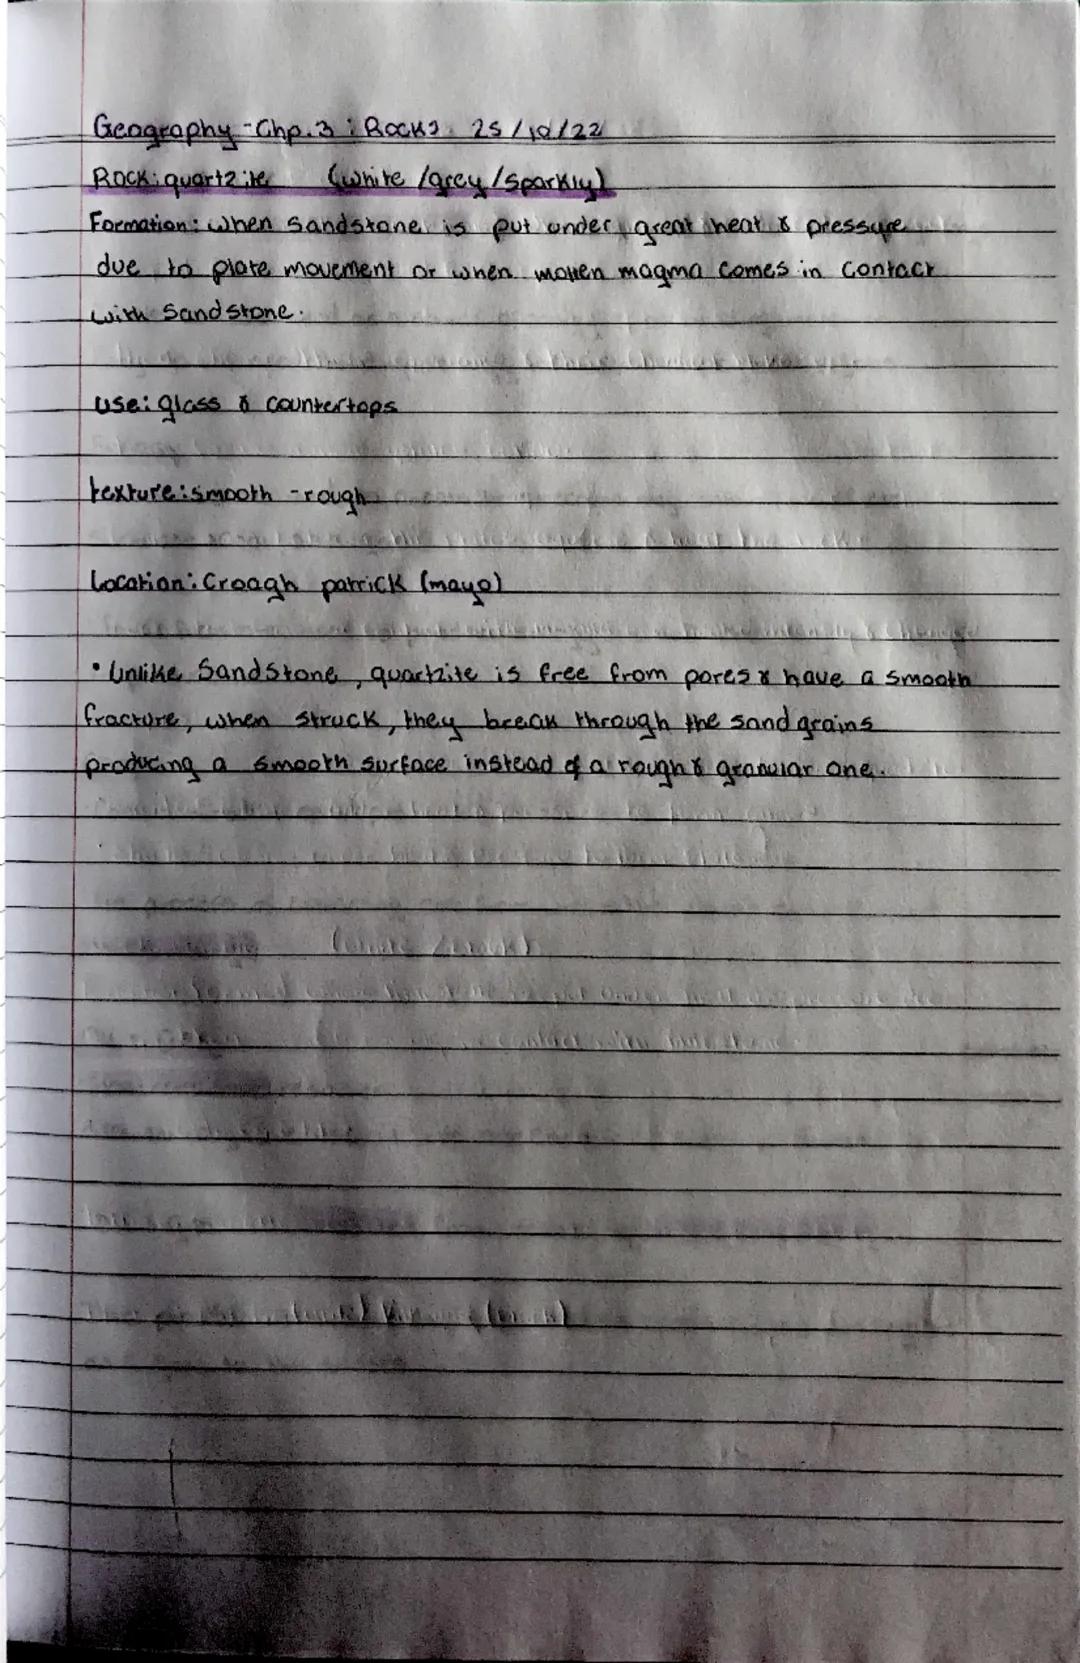 Geography - Chp.3 : Rocks 25/10/22
Rock: quartzite (white /grey /sparkly)
Formation: when sandstone is put under great heat & pressure
due to plate movement or when molten magma comes in contact
with sandstone.
use: glass & countertops
texture: smooth - rough
Location: Croagh patrick (mayo)
• Unlike Sandstone, quartzite is free from pores & have a smooth
fracture, when struck, they break through the sand grains
producing a smooth surface instead of a rough & granular one.